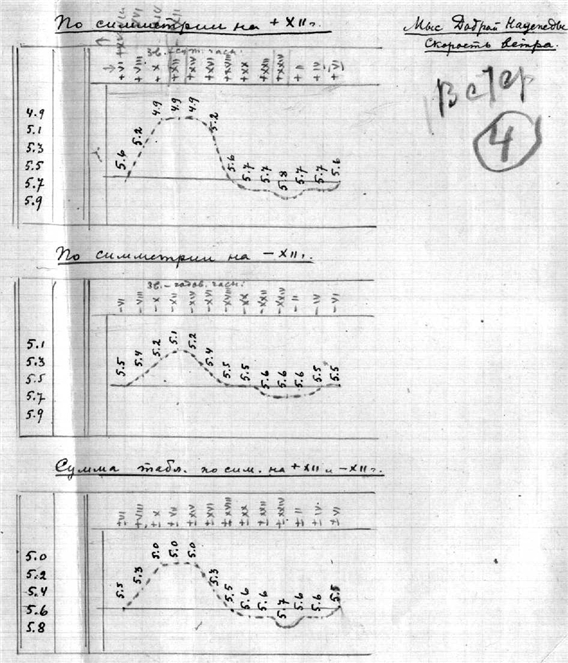 По симметрии на +XII ч.
Мыс Доброй Надежды
Скорость ветра.
Зв.-сут. часы.
+VI +VIII +X +XII +XIV +XVI +XVIII +XX +XXII +XXIV +II +IV +VI
4
4.9
5.1
5.3
5.5
5.7
5.9
5.6 5.2 4.9 4.9 4.9 5.2 5.6 5.7 5.7 5.8 5.7 5.7 5.6
По симметрии на -XII ч.
Зв.-годов. часы.
-VI -VIII -X -XII -XIV -XVI -XVIII -XX -XXII -XXIV -II -IV -VI
5.1
5.3
5.5
5.7
5.9
5.5 5.4 5.2 5.1 5.2 5.4 5.5 5.5 5.6 5.6 5.6 5.5 5.5
Сумма табл. по сим. на +XII и -XII ч.
±VI ±VIII ±X ±XII ±XIV ±XVI ±XVIII ±XX ±XXII ±XXIV ±II ±IV ±VI
5.0
5.2
5.4
5.6
5.8
5.5 5.3 5.0 5.0 5.0 5.3 5.5 5.6 5.6 5.7 5.6 5.6 5.5